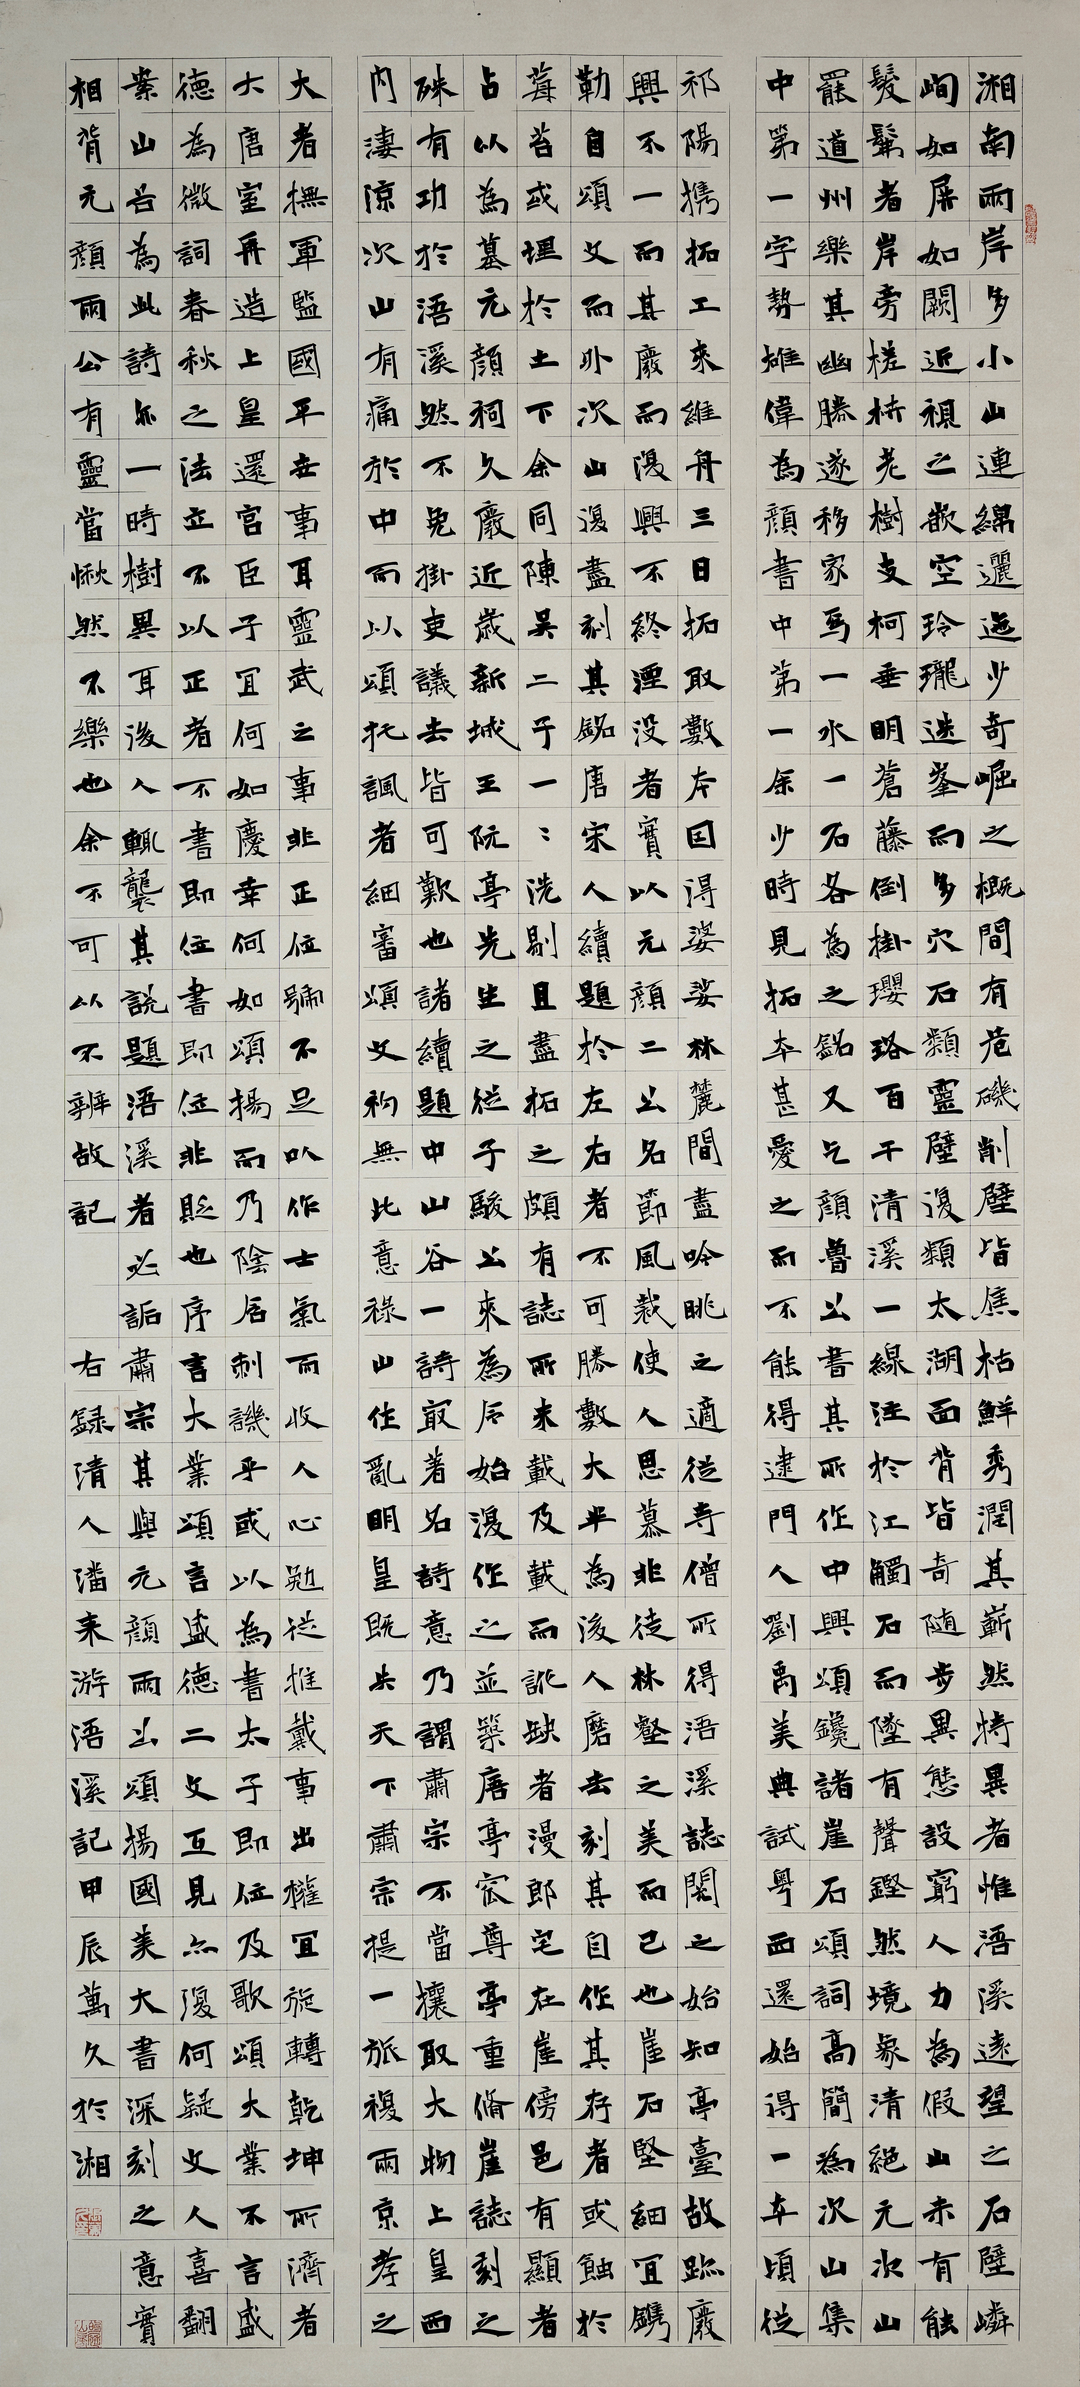 湘南兩岸多小山連綿邐迤少奇崛之概間有危磯削壁皆焦枯鮮秀潤其嶄然特異者惟浯溪遠望之石壁嶙
峋如屏如闕近視之嵌空玲瓏迭峯而多穴石類靈壁復類太湖面背皆奇隨步異態設窮人力為假山未有能
髣髴者岸旁槎枿老樹支柯垂明蒼藤倒掛瓔珞百千清溪一線注於江觸石而墜有聲鏗然境象清絕元次山
罷道州樂其幽勝遂移家焉一水一石各為之銘又乞顏魯公書其所作中興頌鑱諸崖石頌詞高簡為次山集
中第一字勢雄偉為顏書中第一余少時見拓本甚愛之而不能得逮門人劉禹美典試粵西還始得一本頃從
祁陽携拓工來維舟三日拓取數本因得婆娑林麓間盡吟眺之適從寺僧所得浯溪誌閱之始知亭臺故跡廢
興不一而其廢而復興不終湮没者實以元顏二公名節風裁使人思慕非徒林壑之美而已也崖石堅細宜鐫
勒自頌文而外次山復盡刻其銘唐宋人續題於左右者不可勝數大半為後人磨去刻其自作其存者或蝕於
莓苔或埋於土下余同陳吳二子一〻洗剔且盡拓之頗有誌所未載及載而訛缺者漫郎宅在崖傍邑有顯者
占以為墓元顏祠久廢近歲新城王阮亭先生之從子駿公來為后始復作之並築唐亭窊尊亭重脩崖誌刻之
硃有功於浯溪然不免掛吏議去皆可歎也諸續題中山谷一詩㝡著名詩意乃謂肅宗不當攘取大物上皇西
内淒涼次山有痛於中而以頌托諷者細審頌文初無此意祿山作亂明皇既失天下肅宗提一旅複兩京孝之
大者撫軍監國平安事耳靈武之事非正位號不足以作士氣而收人心勉從推戴事出權宜旋轉乾坤所濟者
大唐室再造上皇還宮臣子宜何如慶幸何如頌揚而乃陰居刺譏乎或以為書太子即位及歌頌大業不言盛
德為微詞春秋之法立不以正者不書即位書即位非貶也序言大業頌言盛德二文互見亦復何疑文人喜翻
案山谷為此詩亦一時樹異耳後人輒襲其說題浯溪者必詬肅宗其與元顏兩公頌揚國美大書深刻之意實
相背元顏兩公有靈當愀然不樂也余不可以不辨故記
右錄清人潘耒游浯溪記甲辰萬久於湘